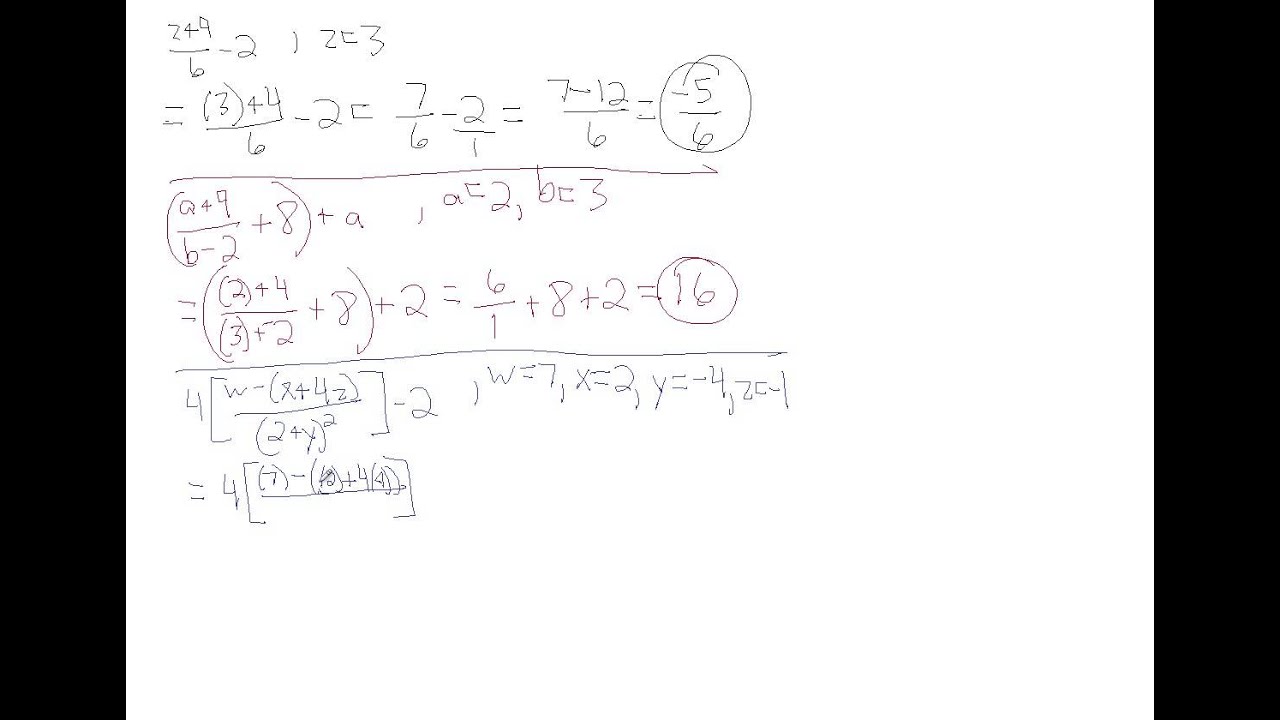 (z+4)/6 - 2 , z=3
= ((3)+4)/6 - 2 = 7/6 - 2/1 = (7-12)/6 = -5/6
((a+4)/(b-2) + 8) + a , a=2, b=3
= (((2)+4)/((3)-2) + 8) + 2 = 6/1 + 8 + 2 = 16
4[(w-(x+4z))/(2+y)^2] - 2 , w=7, x=2, y=-4, z=-1
= 4[(7)-((2)+4(-1))]